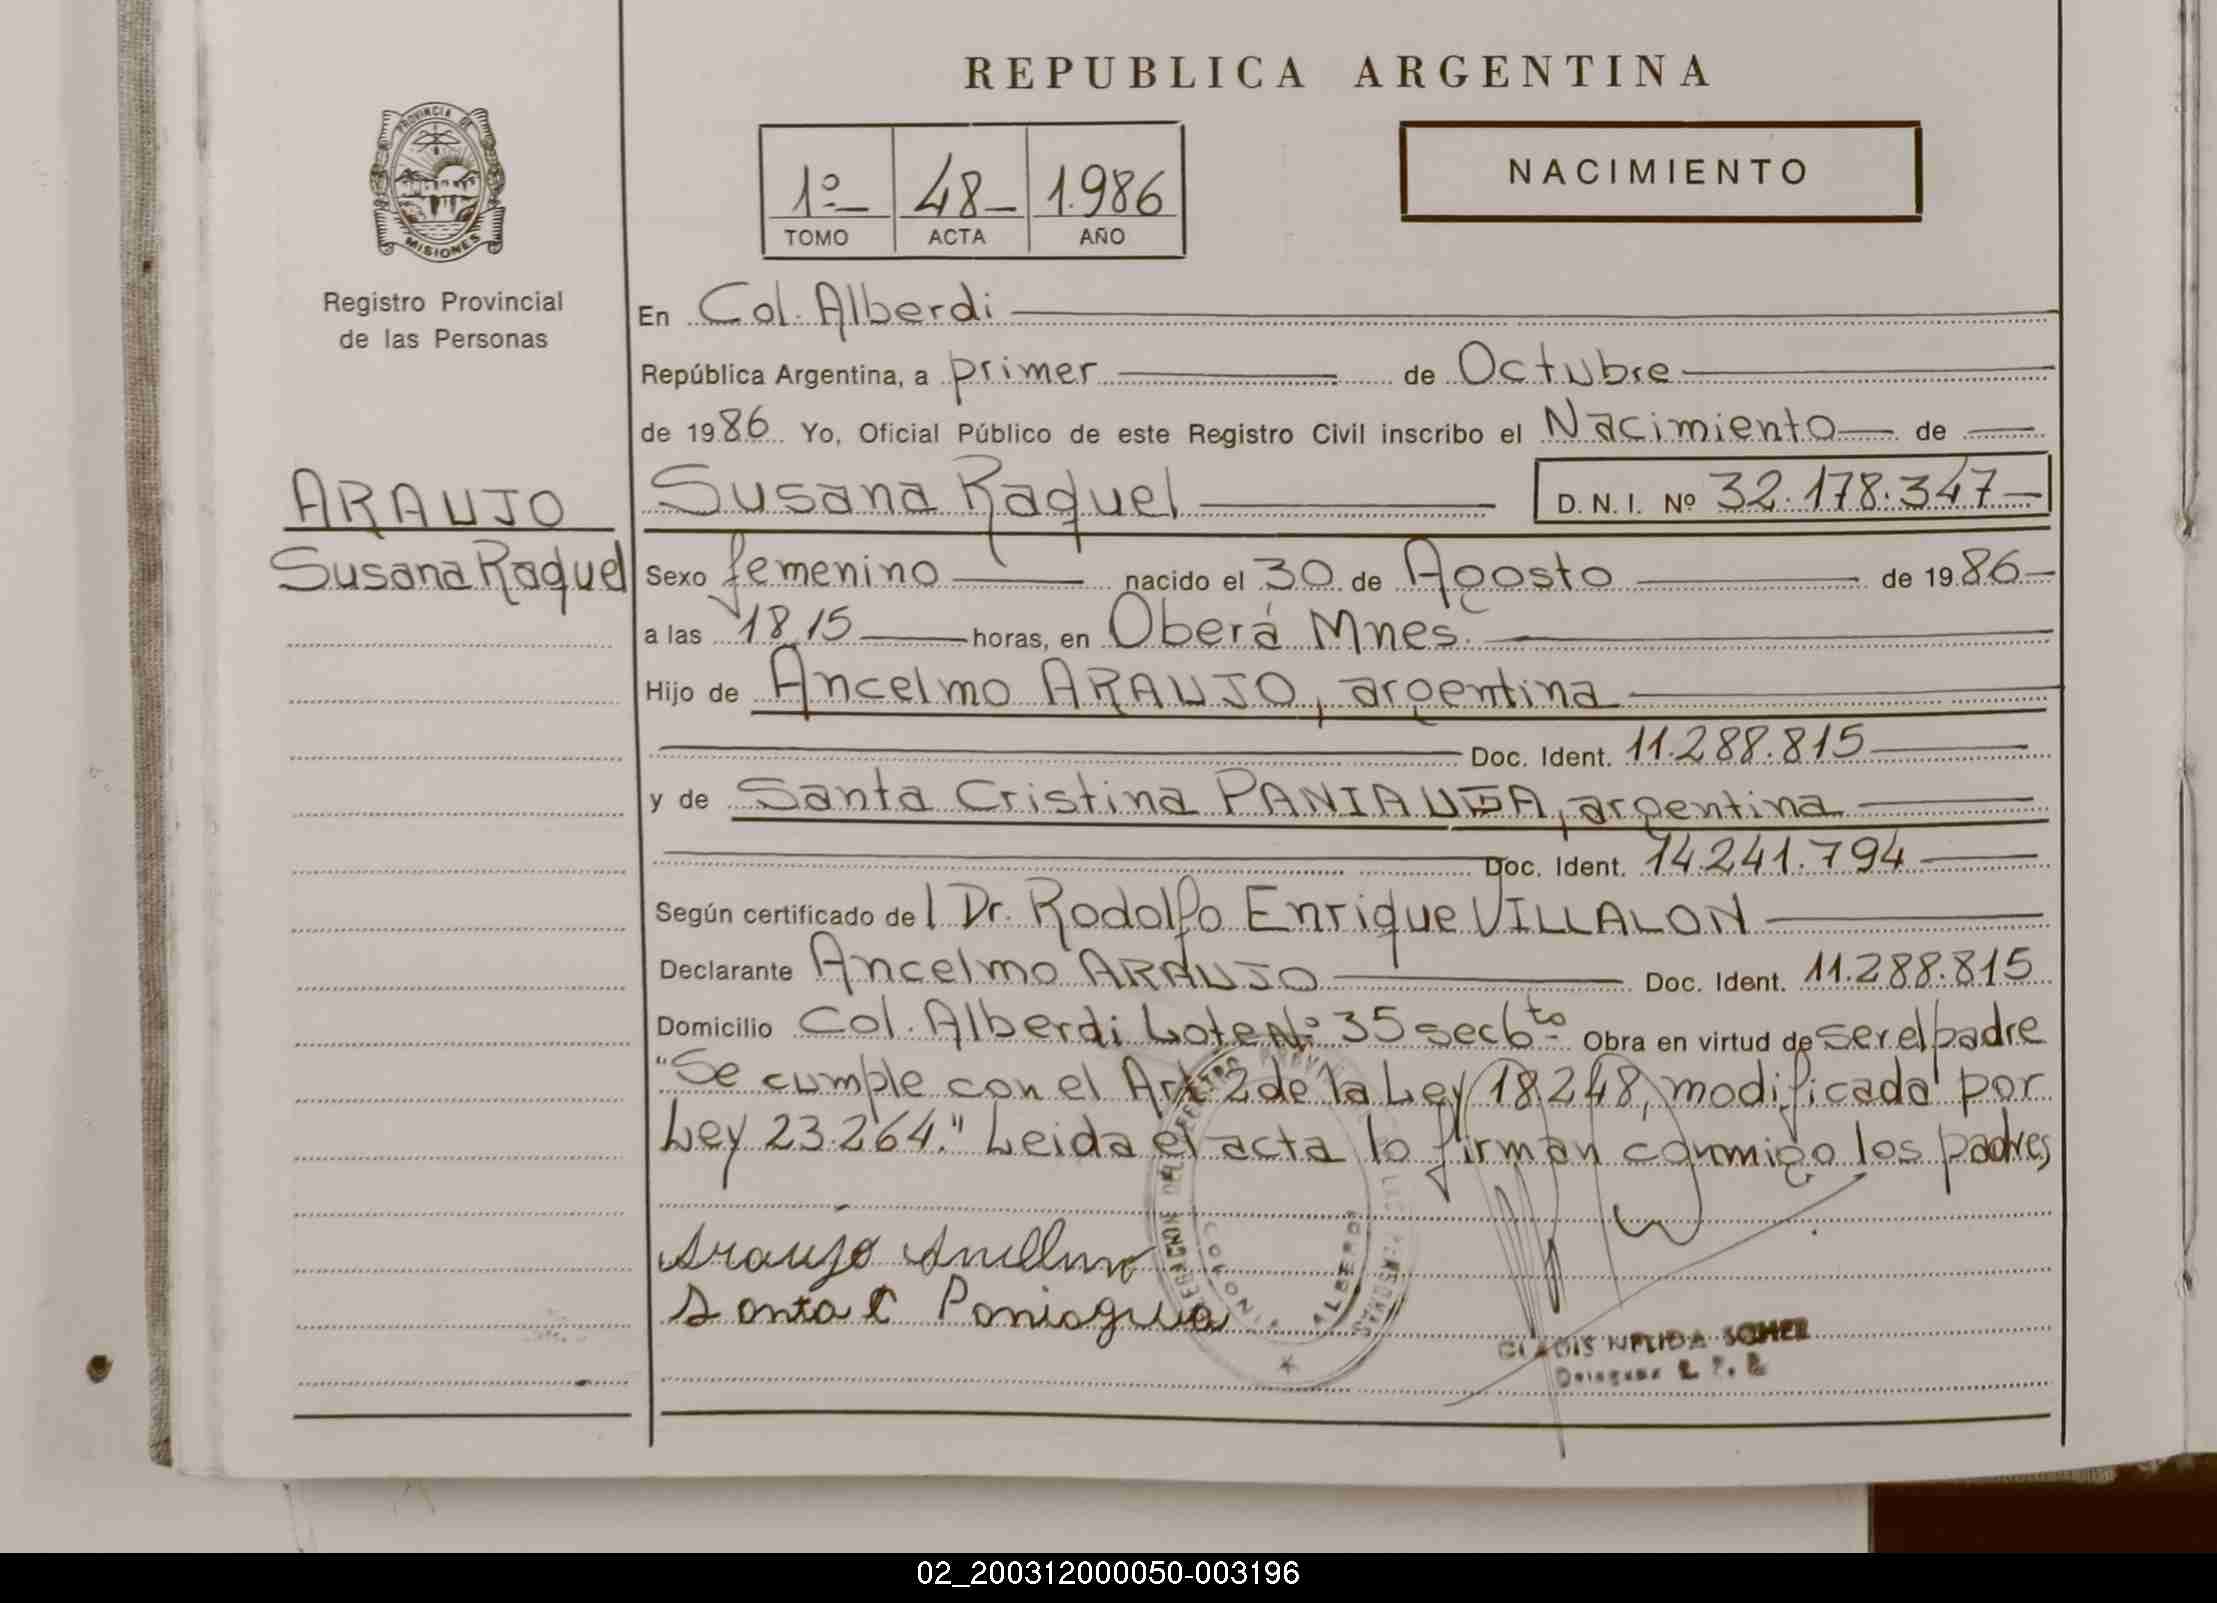 REPUBLICA ARGENTINA
PROVINCIA DE
MISIONES
Registro Provincial
de las Personas
1º
48
1.986
TOMO
ACTA
AÑO
NACIMIENTO
En Col. Alberdi
República Argentina, a primer de Octubre
de 1986 Yo, Oficial Público de este Registro Civil inscribo el Nacimiento de
ARAUJO
Susana Raquel
Susana Raquel D. N. I. Nº 32.178.347
Sexo femenino nacido el 30 de Agosto de 1986
a las 18,15 horas, en Oberá Mnes.
Hijo de Ancelmo ARAUJO, argentina
Doc. Ident. 11.288.815
y de Santa Cristina PANIAUGA, argentina
Doc. Ident. 14.241.794
Según certificado del Dr. Rodolfo Enrique VILLALON
Declarante Ancelmo ARAUJO Doc. Ident. 11.288.815
Domicilio Col. Alberdi Lote Nº 35 sec 6to Obra en virtud de ser el padre
"Se cumple con el Art 2 de la Ley 18.248, modificada por
Ley 23.264." Leida el acta lo firman conmigo los padres
Araujo
Santa C Paniagua
COLONIA ALBERDI
NELIDA
02_200312000050-003196